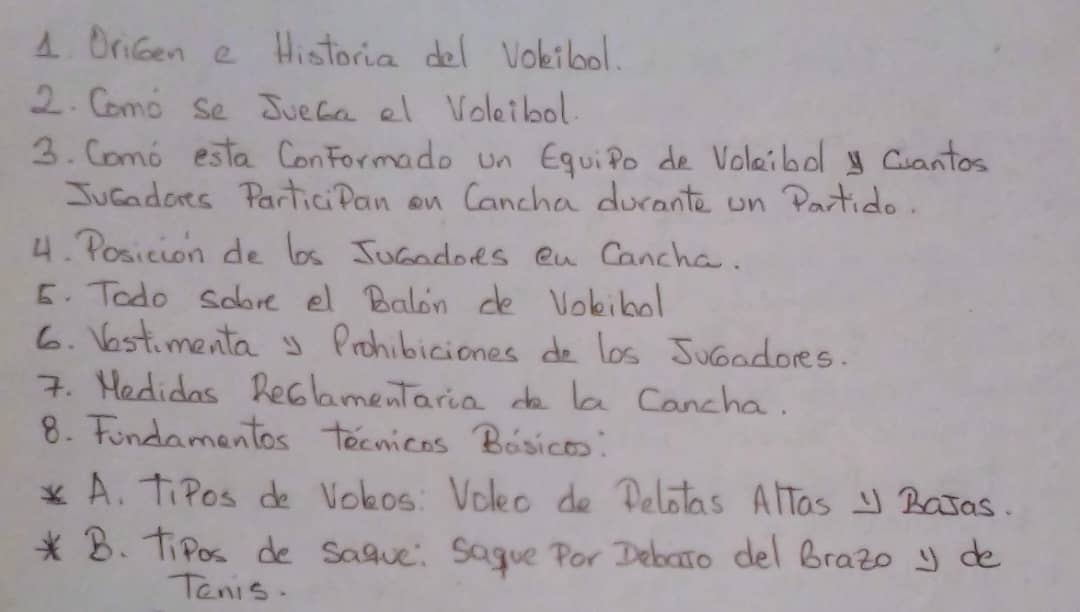 1. Origen e Historia del Voleibol.
2. Comó se Juega el Voleibol.
3. Comó esta Conformado un Equipo de Voleibol y Cuantos
Jugadores Participan en Cancha durante un Partido.
4. Posición de los Jugadores en Cancha.
5. Todo sobre el Balón de Voleibol
6. Vestimenta y Prohibiciones de los Jugadores.
7. Medidas Reglamentaria de la Cancha.
8. Fundamentos técnicos Básicos:
* A. Tipos de Voleos: Voleo de Pelotas Altas y Bajas.
* B. Tipos de saque: Saque Por Debajo del Brazo y de
Tenis.